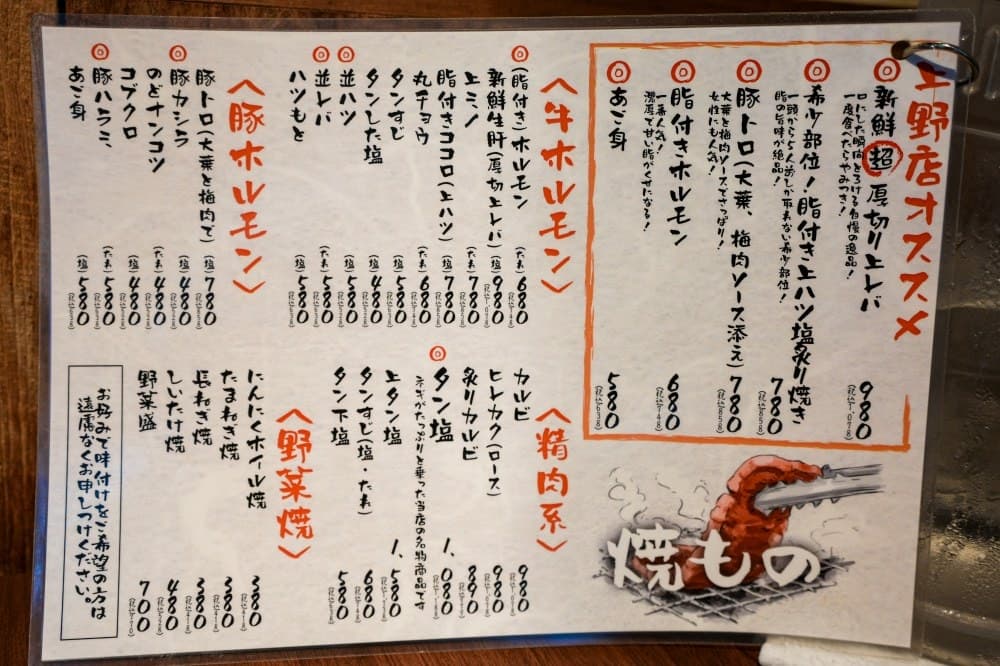 上野店オススメ
新鮮 超 厚切り上レバ
口にした瞬間とろける自慢の逸品！
一度食べたらやみつき！
980
(税込1,078)
希少部位！脂付き上ハツ塩炙り焼き
一頭から5人前しか取れない希少部位！
脂の旨味が絶品！
780
(税込858)
豚トロ(大葉、梅肉ソース添え)
大葉と梅肉ソースでさっぱり！
女性にも人気！
780
(税込858)
脂付きホルモン
一番人気！
濃厚で甘い脂がくせになる！
680
(税込748)
あご身
580
(税込638)
焼もの
〈牛ホルモン〉
(脂付き)ホルモン (たれ) 680 (税込748)
新鮮生肝(厚切上レバ) (塩) 980 (税込1,078)
上ミノ (たれ) 780 (税込858)
脂付きココロ(上ハツ) (塩) 780 (税込858)
丸チョウ (たれ) 680 (税込748)
タンすじ (塩) 580 (税込638)
タンした塩 (塩) 480 (税込528)
並ハツ (塩) 580 (税込638)
並レバ (たれ) 580 (税込638)
ハツもと (塩) 580 (税込638)
〈豚ホルモン〉
豚トロ(大葉と梅肉で) (塩) 780 (税込858)
豚カシラ (塩) 480 (税込528)
のどナンコツ (たれ) 480 (税込528)
コブクロ (塩) 480 (税込528)
豚ハラミ (たれ) 580 (税込638)
あご身 (塩) 580 (税込638)
〈精肉系〉
カルビ 980 (税込1,078)
ヒレカク(ロース) 980 (税込1,078)
炙りカルビ 890
タン塩 1,080
ネギがたっぷりと乗った当店の名物商品です
上タン塩 1,580
タンすじ(塩・たれ) 680 (税込748)
タン下塩 580 (税込638)
〈野菜焼〉
にんにくホイル焼 380 (税込418)
たまねぎ焼 380 (税込418)
長ねぎ焼 380 (税込418)
しいたけ焼 480 (税込528)
野菜盛 700 (税込770)
お好みで味付けをご希望の方は
遠慮なくお申しつけください。